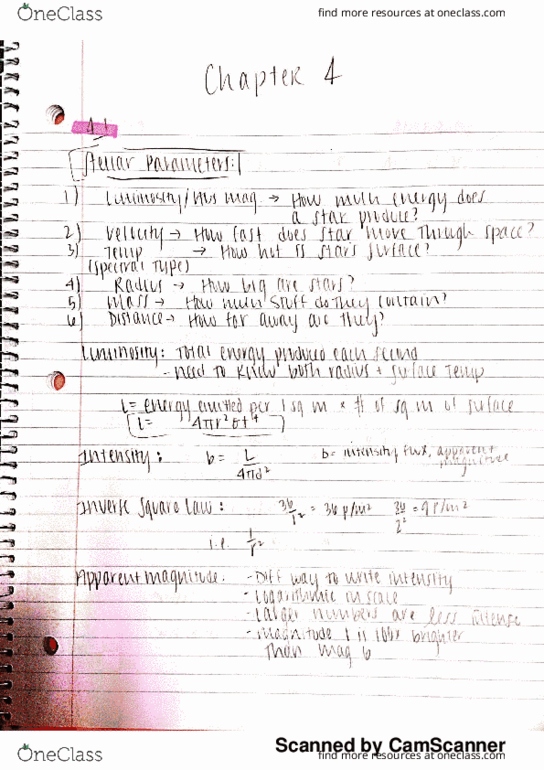 OneClass
find more resources at oneclass.com
Chapter 4
4.1
Stellar Parameters:
1) Luminosity/Abs mag → How much energy does
a star produce?
2) Velocity → How fast does star move through space?
3) Temp → How hot is stars surface?
(spectral type)
4) Radius → How big are stars?
5) Mass → How much stuff do they contain?
6) Distance → How far away are they?
Luminosity: Total energy produced each second
- need to know both radius + surface temp
L = energy emitted per 1 sq m × # of sq m of surface
L = 4πr²σt⁴
Intensity: b = L / 4πd² b = intensity flux, apparent
magnitude
Inverse Square Law: 36/1² = 36 p/m² 36/2² = 9 p/m²
i.e. 1/r²
Apparent magnitude: - Diff way to write intensity
- Logarithmic in scale
- Larger numbers are less intense
- magnitude 1 is 100x brighter
than mag 6
Scanned by CamScanner
OneClass
find more resources at oneclass.com